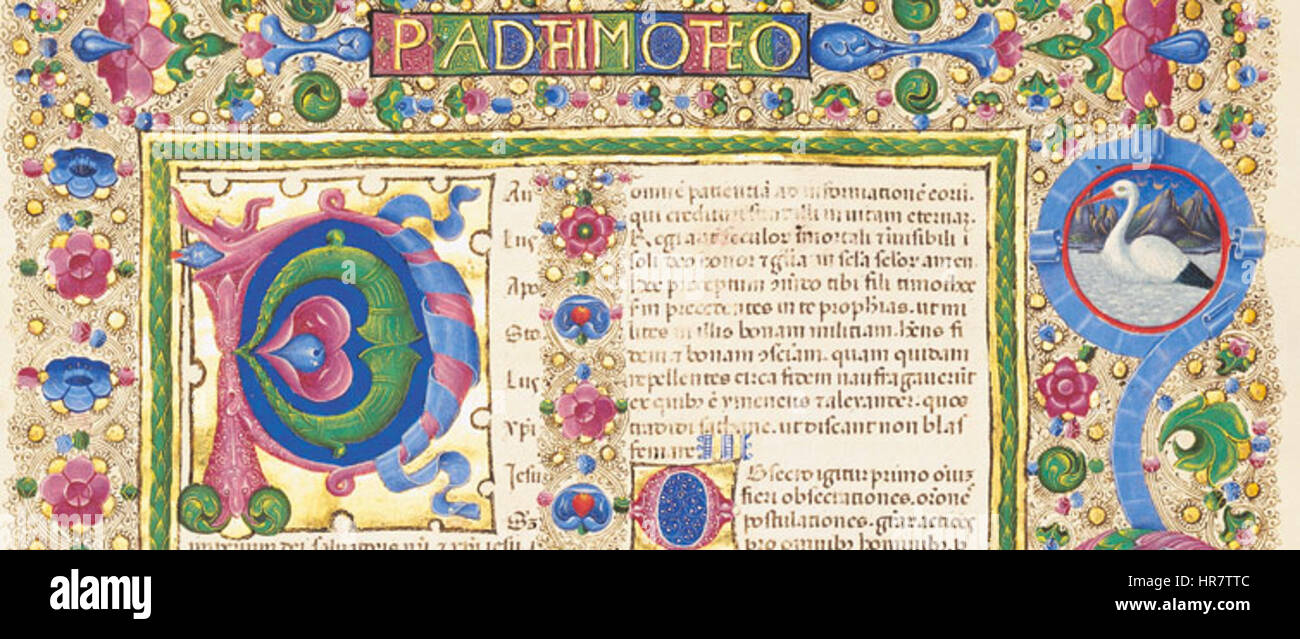 P·AD·THIMOTEO
P
Au
Lus
Apo
Sto
Lus
Xpi
Jesu
omnē patientiā ad informationē eoru.
qui credituri sunt illi in uitam eternaz.
Regi aūt seculor īmortali ⁊ inuisibili
soli deo honor ⁊ gl̄ia in scl̄a scl̄or amen
hoc preceptum ɔm̄do tibi fili timothee
s̄m precedentes in te prophīas. ut mi
lites in illis bonam militiam. hn̄s fi
dem ⁊ bonam ɔsciam. quam quidam
repellentes circa fidem naufragauerūt
ex quibꝰ ē ymeneus ⁊ alexander. quos
tradidi sathane. ut discant non blas
femare. II
O
Bsecro igitur primo oīuz
fieri obsecrationes. or̄onē
postulationes. gr̄aractiōēs
pro omnibꝰ hominibꝰ. p
alamy
Image ID: HR7TTC
www.alamy.com